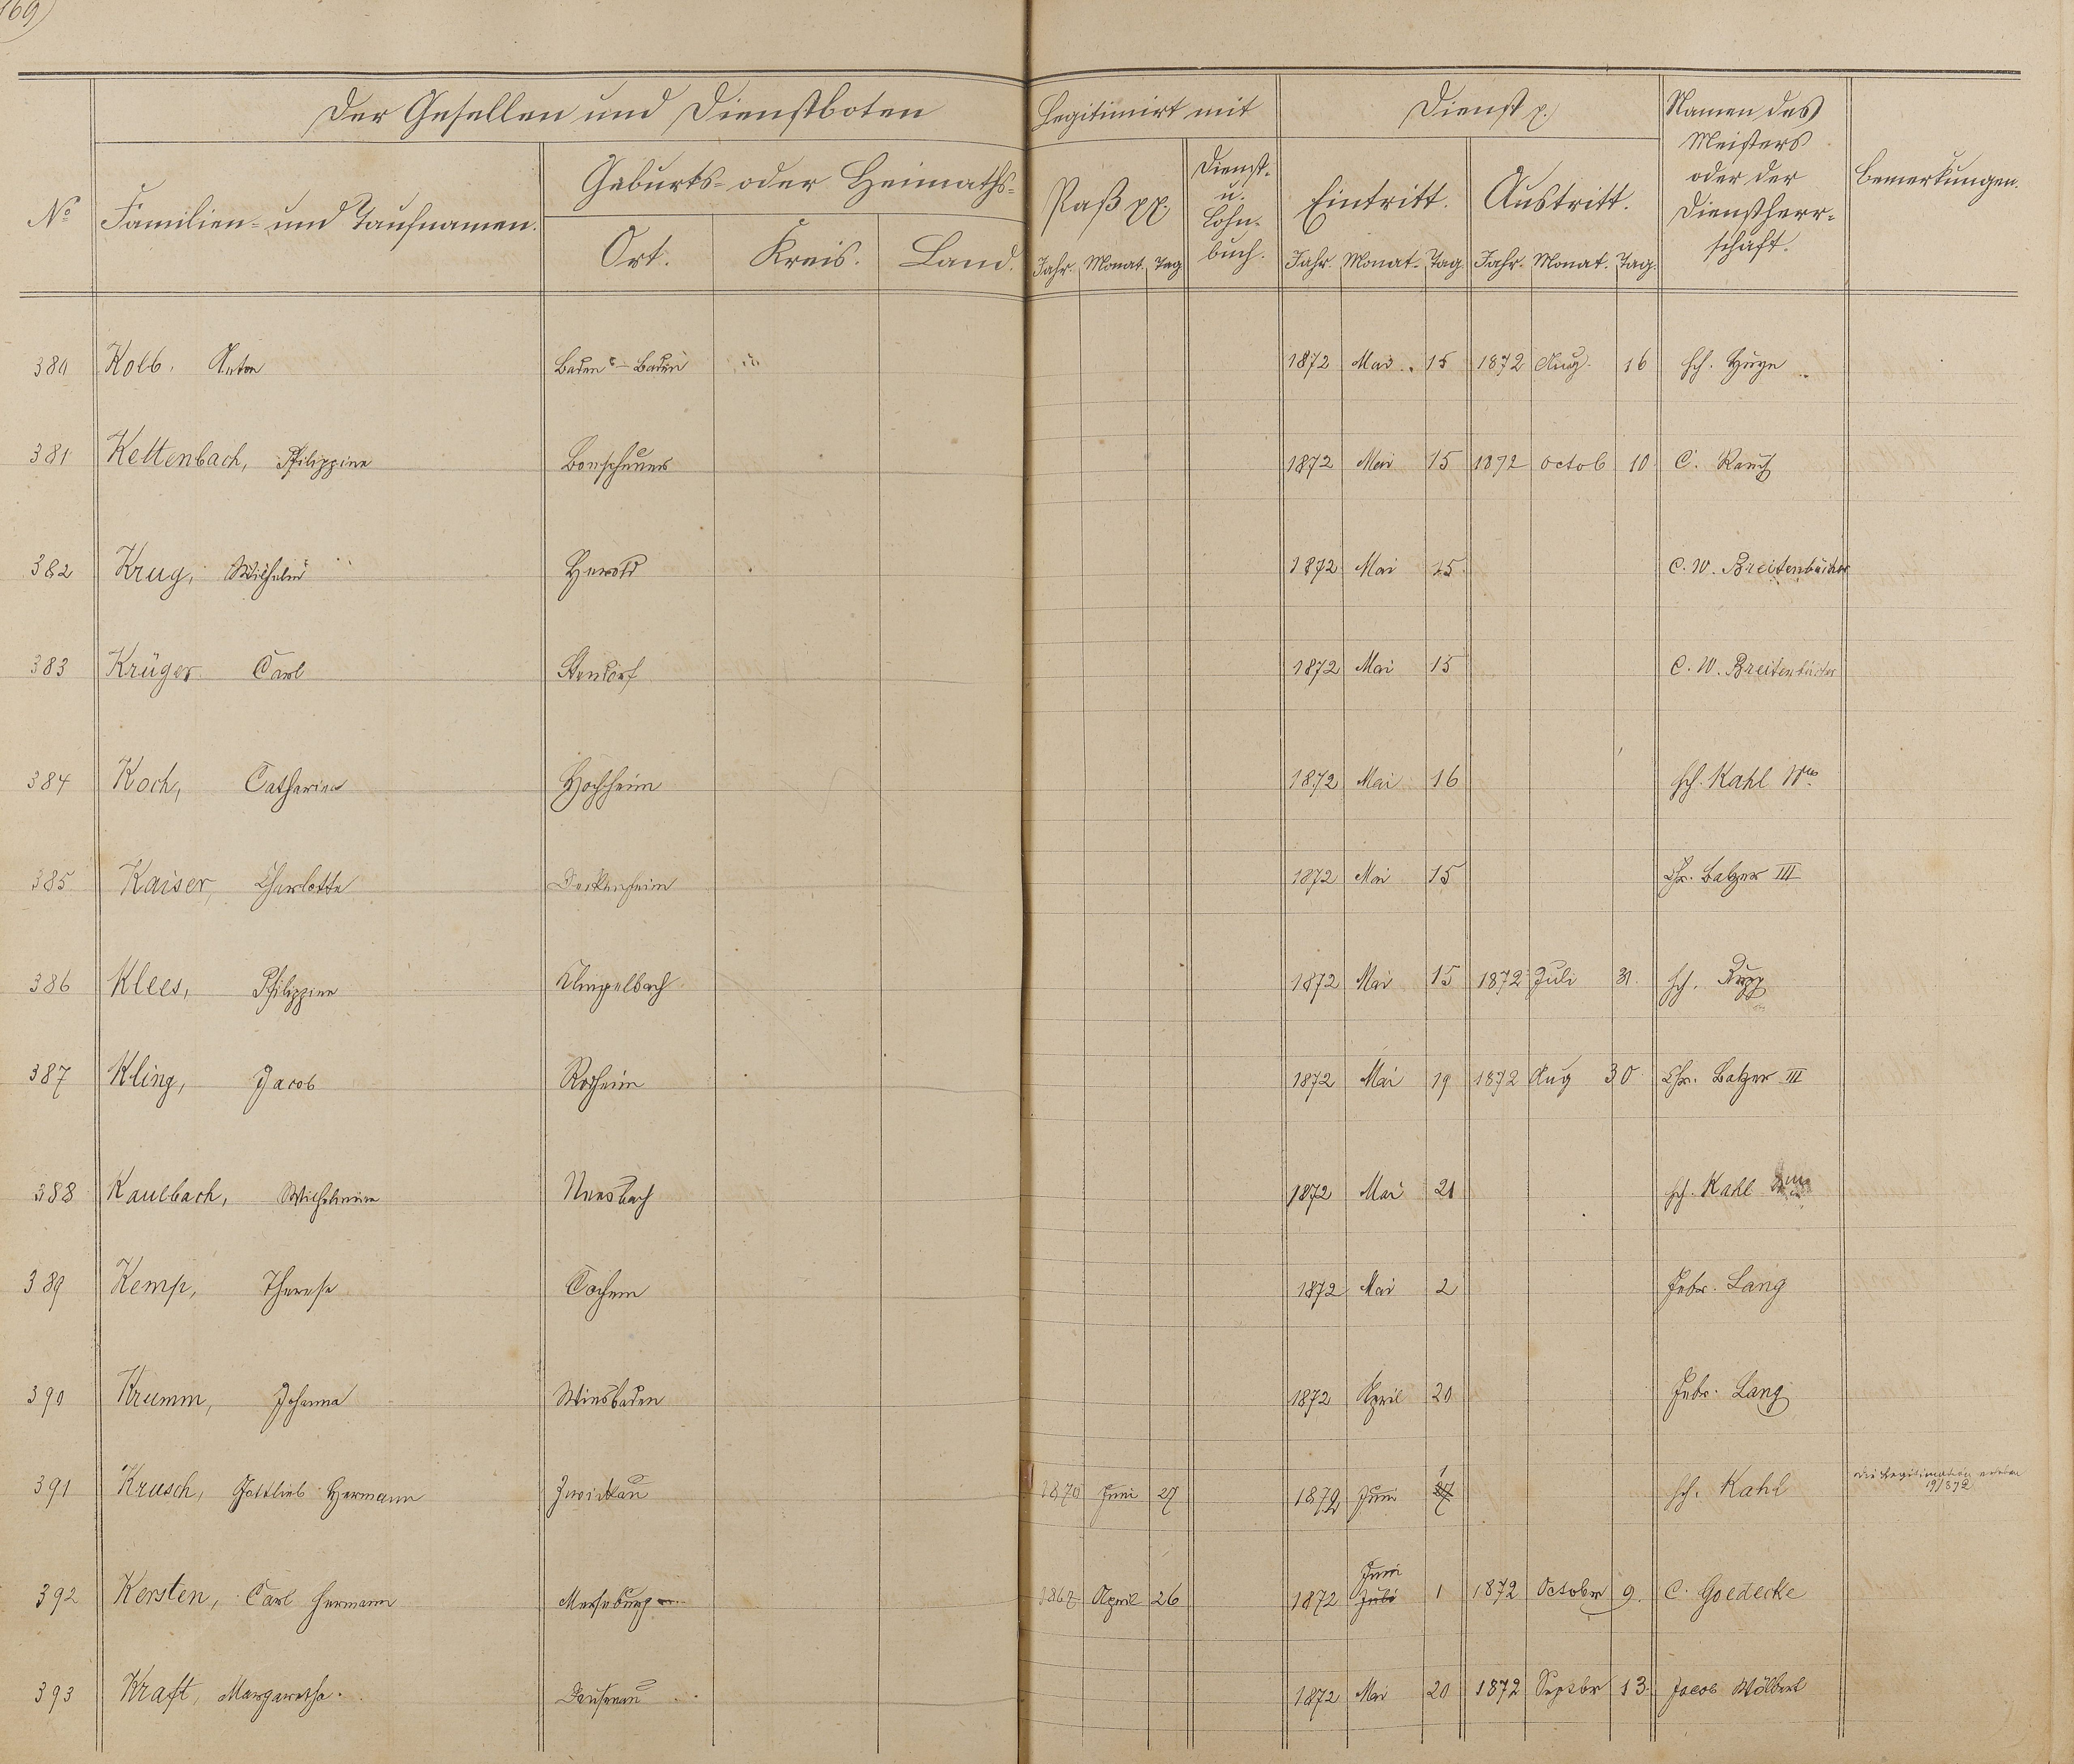 169)
Der Gesellen und Dienstboten
Legitimirt mit
Dienst p.
Namen des
Meisters
oder der
Dienstherr-
schaft.
Bemerkungen.
No
Familien- und Taufnamen.
Geburts- oder Heimaths-
Ort. Kreis. Land.
Paß pp.
Jahr. Monat. Tag
Dienst-
u.
Lohn-
buch.
Eintritt.
Jahr. Monat. Tag.
Austritt.
Jahr. Monat. Tag.
380 Kolb, Anton Baden-Baden 1872 Mai 15 1872 Aug. 16 Hch.
381 Kettenbach, Philippine 1872 Mai 15 1872 Octob 10 C.
382 Krug, Wilhelm Herold 1872 Mai 15 C. W. Breitenbücher
383 Krüger Carl 1872 Mai 15 C. W. Breitenbücher
384 Koch, Catharina Hochheim 1872 Mai 16 Hch. Kahl Wwe
385 Kaiser, Charlotte 1872 Mai 15 Chr. Balzer III
386 Klees, Philippine Klingelbach 1872 Mai 15 1872 Juli 31. Hch. Rupp
387 Kling, Jacob Rodheim 1872 Mai 19 1872 Aug 30 Chr. Balzer III
388 Kaulbach, Wilhelmine 1872 Mai 21 Hch. Kahl
389 Kemp, Therese Cochem 1872 Mai 2 Gebr. Lang
390 Krumm, Johanna Wiesbaden 1872 April 20 Gebr. Lang
391 Krusch, Gottlieb Hermann Zwickau 1870 Juni 27 1872 Juni 1 Hch. Kahl
392 Kersten, Carl Hermann Merseburg April 26 1872 Juni Juli 1 1872 October 9. C. Goedecke
393 Kraft, Margaretha. Dausenau 1872 Mai 20 1872 Septbr 13. Jacob Wölbert